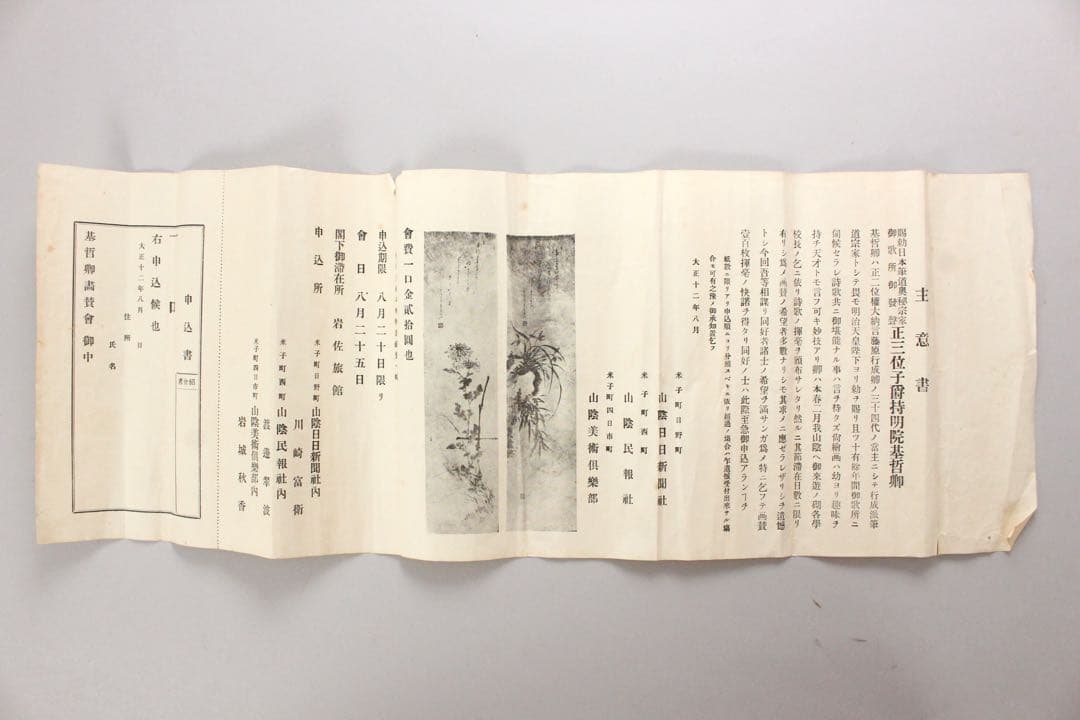 主意書
賜勅日本筆道奧秘宗家
御歌所御發聲
正三位子爵持明院基哲卿
基哲卿ハ正二位權大納言藤原行成卿ノ三十四代ノ當主ニシテ行成派筆
道宗家トシテ畏モ明治天皇陛下ヨリ勅ヲ賜リ且ツ十有餘年間御歌所ニ
伺候セラレ詩歌共ニ御堪能ナル事ハ言ヲ待タズ尙繪画ハ幼ヨリ趣味ヲ
持チ天才トモ言フ可キ妙技アリ卿ハ本春二月我山陰ヘ御來遊ノ砌各學
校長ノ乞ニ依リ詩歌ノ揮毫ヲ頒布サレタリ然ルニ其節滯在日數ニ限リ
有リシ爲メ画賛ノ希望者多數ナリシモ其求メニ應ゼラレザリシヲ遺憾
トシ今回吾等相謀リ同好者諸士ノ希望ヲ滿サンガ爲メ特ニ乞フテ画賛
壹百枚揮毫ノ快諾ヲ得タリ同好ノ士ハ此際至急御申込アランヿヲ
紙數ニ限リアリ申込順ニヨリ分頒スベキニ依リ超過ノ場合ハ乍遺憾受付出來ザル塲
合モ可有之豫メ御承知置乞フ
大正十二年八月
米子町日野町
山陰日日新聞社
米子町西町
山陰民報社
米子町四日市町
山陰美術俱樂部
會費一口金貳拾圓也
申込期限 八月二十日限リ
會日 八月二十五日
閣下御滯在所 岩佐旅館
申込所
米子町日野町 山陰日日新聞社内
川崎富衛
米子町西町 山陰民報社内
渡邊翠波
米子町四日市町 山陰美術俱樂部内
岩城秋香
申込書
一 口
右申込候也
大正十二年八月 日
住所
氏名
基哲卿畵賛會御中